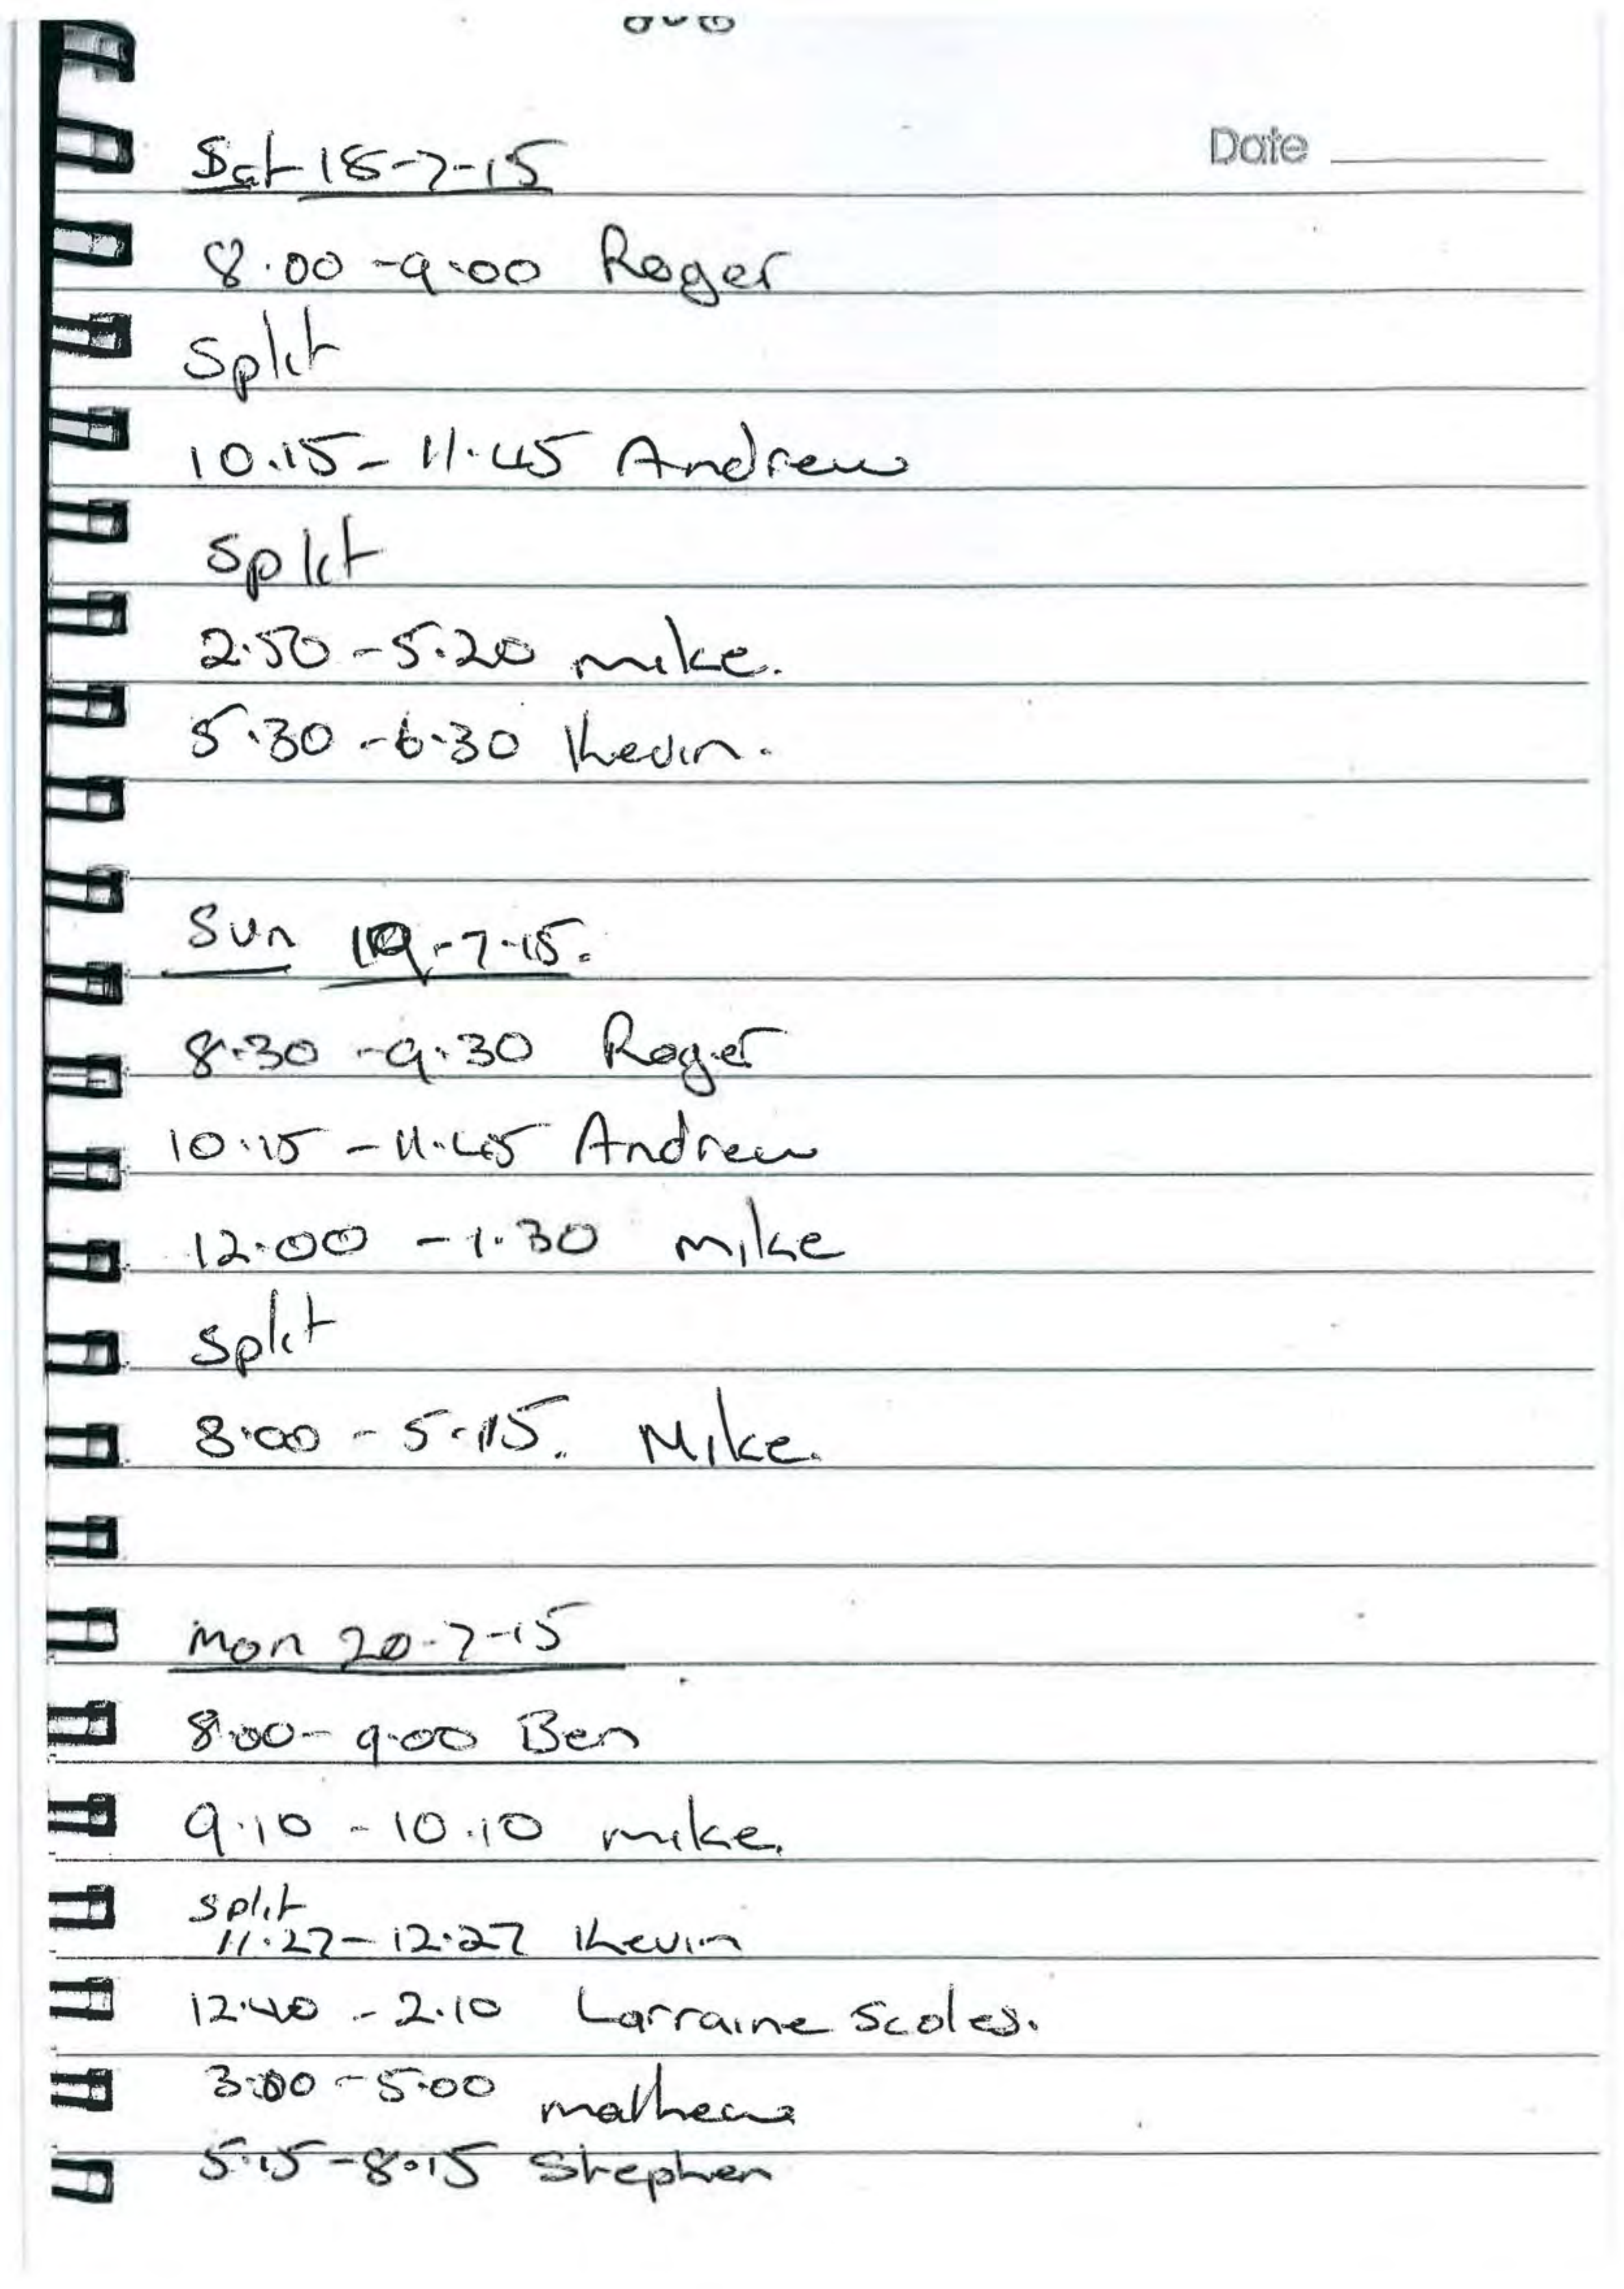 Date
Sat 18-7-15
8.00 - 9.00 Roger
Split
10.15 - 11.45 Andrew
Split
2.50 - 5.20 mike.
5.30 - 6.30 Kevin.
Sun 19-7-15.
8.30 - 9.30 Roger
10.15 - 11.45 Andrew
12.00 - 1.30 mike
Split
3.00 - 5.15. Mike.
Mon 20-7-15
8.00 - 9.00 Ben
9.10 - 10.10 mike.
Split
11.27 - 12.27 Kevin
12.40 - 2.10 Lorraine Scoles.
3.00 - 5.00 mathew
5.15 - 8.15 Stephen